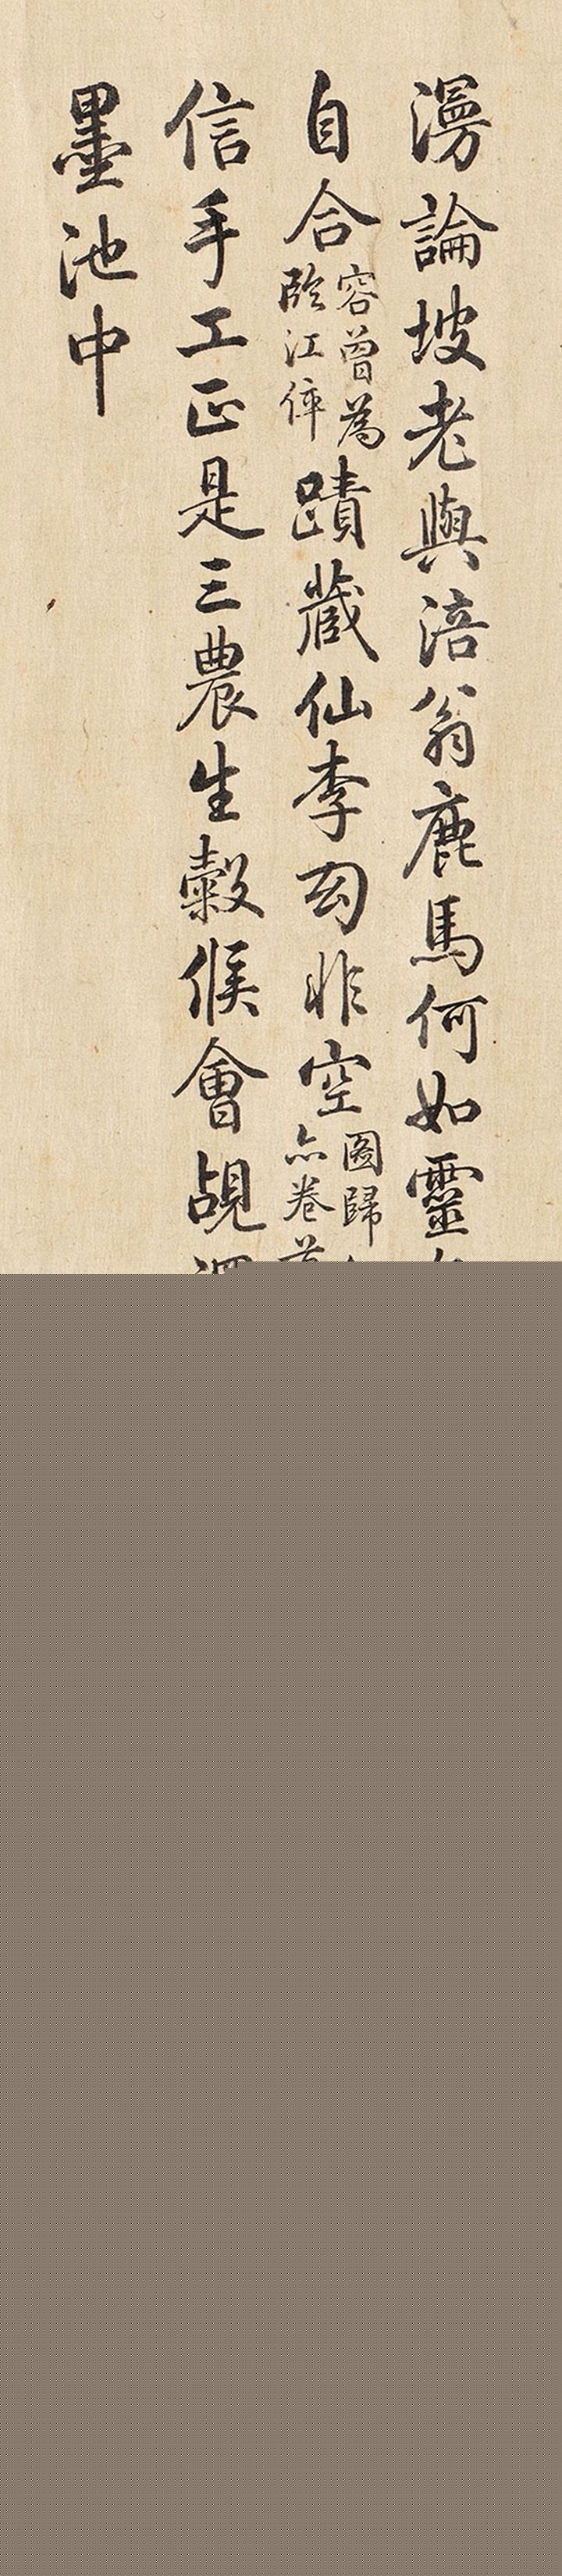 漫論坡老與涪翁鹿馬何如靈
自合容曾為臨江倅蹟藏仙李幻非空圖歸亦卷
信手工正是三農生穀候會覘
墨池中